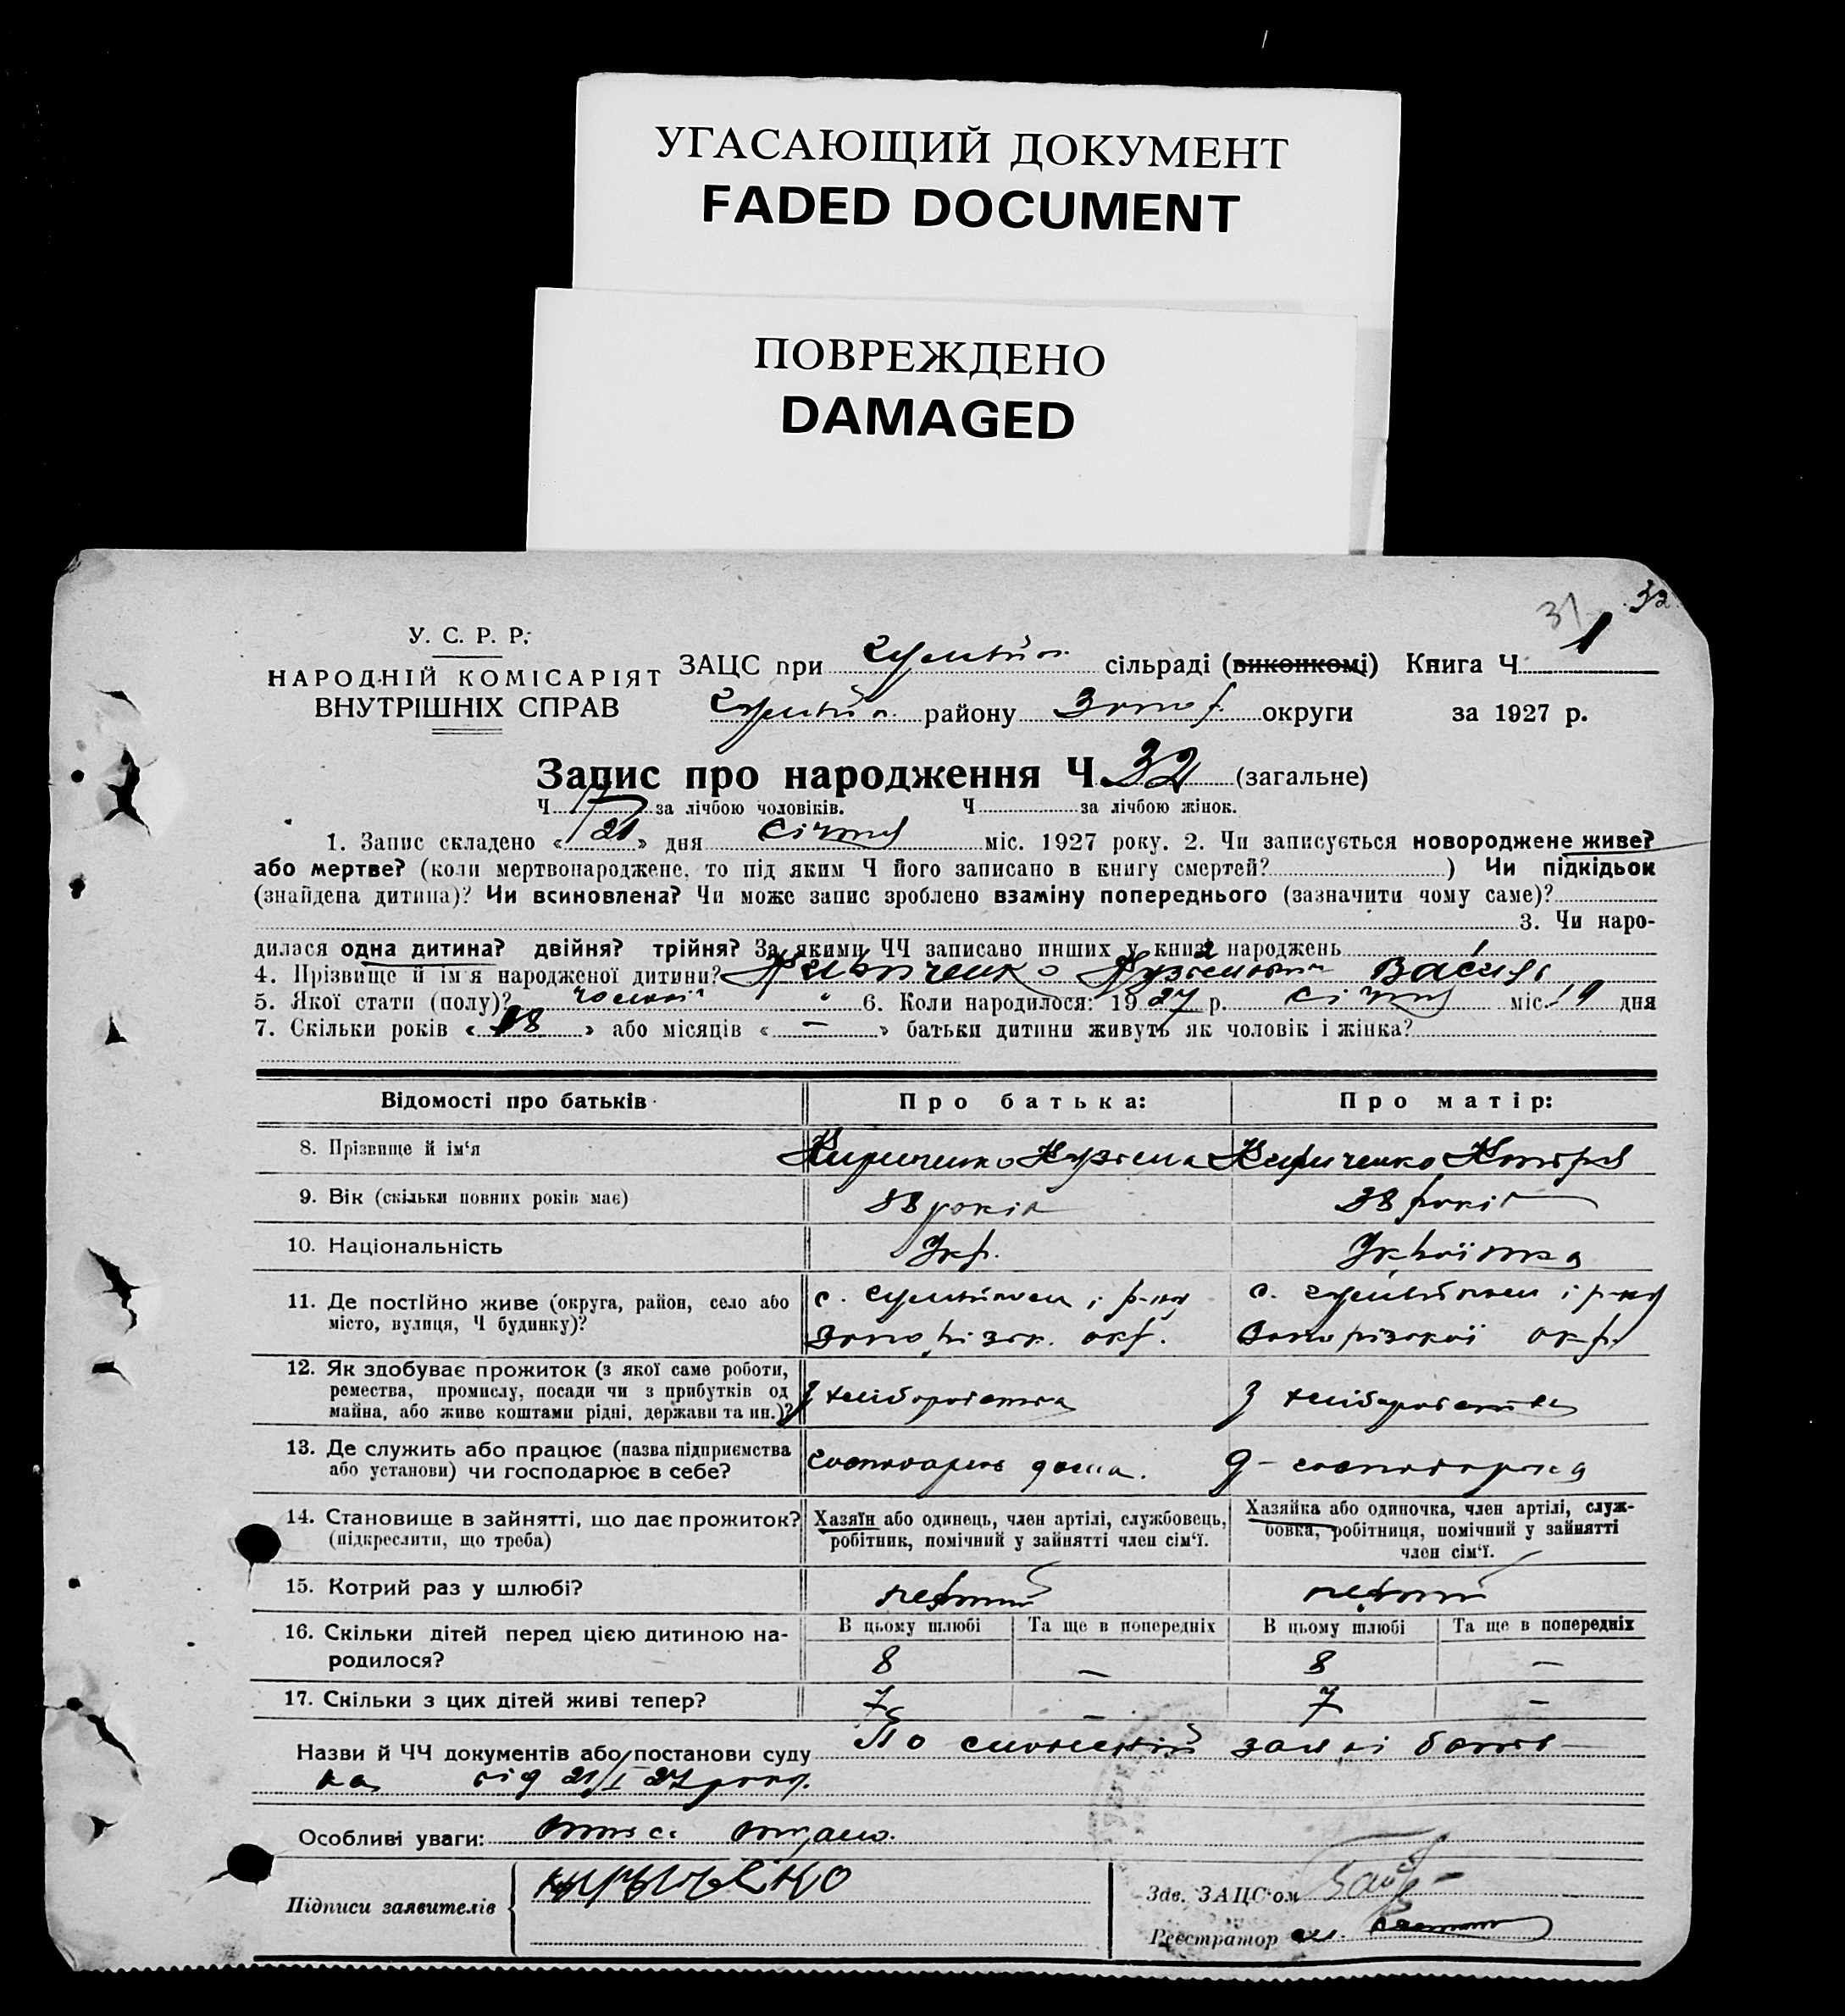 УГАСАЮЩИЙ ДОКУМЕНТ
FADED DOCUMENT
ПОВРЕЖДЕНО
DAMAGED
31 32
У. С. Р. Р.
НАРОДНІЙ КОМІСАРІЯТ
ВНУТРІШНІХ СПРАВ
ЗАЦС при сільраді (виконкомі) Книга Ч. 1
району Запор. округи за 1927 р.
Запис про народження Ч. 32 (загальне)
Ч. 17 за лічбою чоловіків. Ч. за лічбою жінок.
1. Запис складено «21» дня Січня міс. 1927 року. 2. Чи записується новороджене живе?
або мертве? (коли мертвонароджене, то під яким Ч його записано в книгу смертей? ) Чи підкідьок
(знайдена дитина)? Чи всиновлена? Чи може запис зроблено взаміну попереднього (зазначити чому саме)?
3. Чи наро-
дилася одна дитина? двійня? трійня? За якими ЧЧ записано инших у книзі народжень
4. Прізвище й ім'я народженої дитини? Кириченко Василь
5. Якої стати (полу)? чоловіч. 6. Коли народилося: 1927 р. січня міс. 19 дня
7. Скільки років «18» або місяців «—» батьки дитини живуть як чоловік і жінка?
Відомості про батьків Про батька: Про матір:
8. Прізвище й ім'я Кириченко Кузьма Кириченко
9. Вік (скільки повних років має) 38 років 38 років
10. Національність Укр. Українка
11. Де постійно живе (округа, район, село або с. і р-ну с. і р-ну
місто, вулиця, Ч будинку)? Запорізьк. окр. Запорізької окр.
12. Як здобуває прожиток (з якої саме роботи,
ремества, промислу, посади чи з прибутків од З хліборобства З хліборобства
майна, або живе коштами рідні, держави та ин.)?
13. Де служить або працює (назва підприємства господарює дома. д-господарка
або установи) чи господарює в себе?
14. Становище в занятті, що дає прожиток? Хазяїн або одинець, член артілі, службовець, Хазяйка або одиночка, член артілі, служ-
(підкреслити, що треба) робітник, помічний у занятті член сім'ї. бовка, робітниця, помічний у занятті
член сім'ї.
15. Котрий раз у шлюбі? первий первий
16. Скільки дітей перед цією дитиною на- В цьому шлюбі Та ще в попередніх В цьому шлюбі Та ще в попередніх
родилося? 8 — 8 —
17. Скільки з цих дітей живі тепер? 7 — 7 —
Назви й ЧЧ документів або постанови суду По словесній заяві бать-
ка від 21/I 27 року.
Особливі уваги:
Підписи заявителів Кириченко
Зав. ЗАЦС'ом
Реєстратор